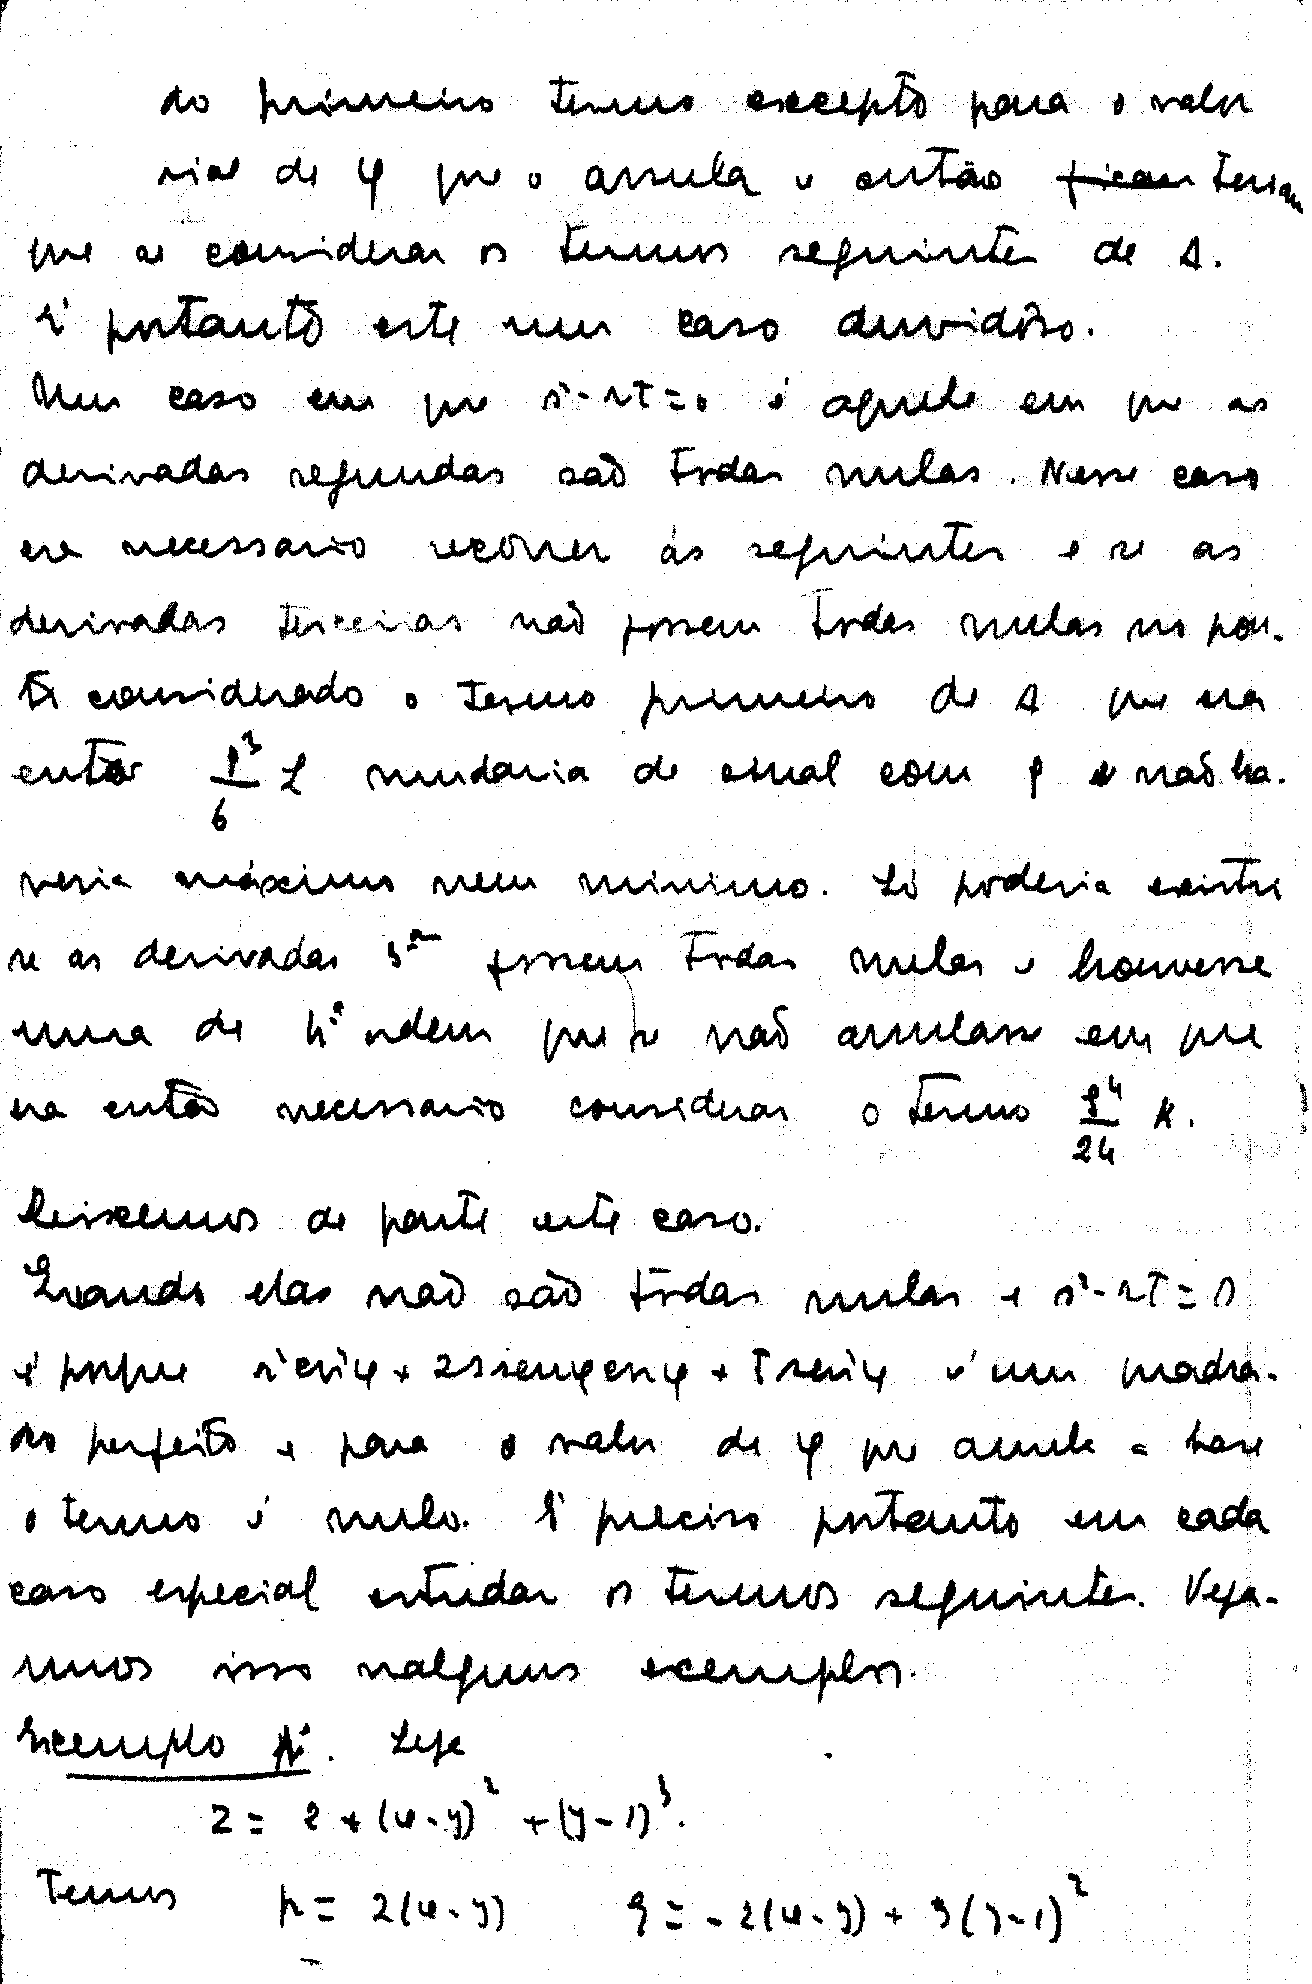 do primeiro termo excepto para o valor
rial de φ que o annula e então ~~ficam~~ teriam
que se considerar os termos seguintes de Δ.
É portanto este um caso duvidôso.
Um caso em que s²-rt=0 é aquele em que as
derivadas segundas são todas nulas. Nesse caso
era necessario recorrer ás seguintes e se as
derivadas terceiras não fossem todas nulas no pon-
to considerado o termo primeiro de Δ que era
então ρ³/6 L mudaria de sinal com ρ e não ha-
veria máximo nem minimo. Só poderia existir
se as derivadas 3ªˢ fossem todas nulas e houvesse
uma de 4ª ordem que se não anulasse em que
era então necessario considerar o termo ρ⁴/24 K.
Deixemos de parte este caso.
Quando elas não são todas nulas e s²-rt=0
é porque r cos²φ + 2s senφ cosφ + t sen²φ é um quadra-
do perfeito e para o valor de φ que anula a base
o termo é nulo. É preciso portanto em cada
caso especial estudar os termos seguintes. Veja-
mos isso nalguns exemplos.
Exemplo 1º. Seja
z = 2 + (x-y)² + (y-1)³.
Temos p = 2(x-y) q = -2(x-y) + 3(y-1)²